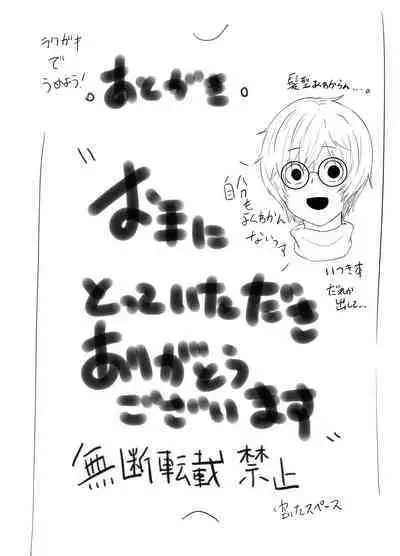 ラクガキ
で
うめよう!
。あとがき。
髪型よくわからん…。
ハハ
自分も
よくわかん
ないっす
いつき本
だれか
出して…
"お手に
とっていただき
ありがとう
ございます"
無断転載禁止
空いたスペース